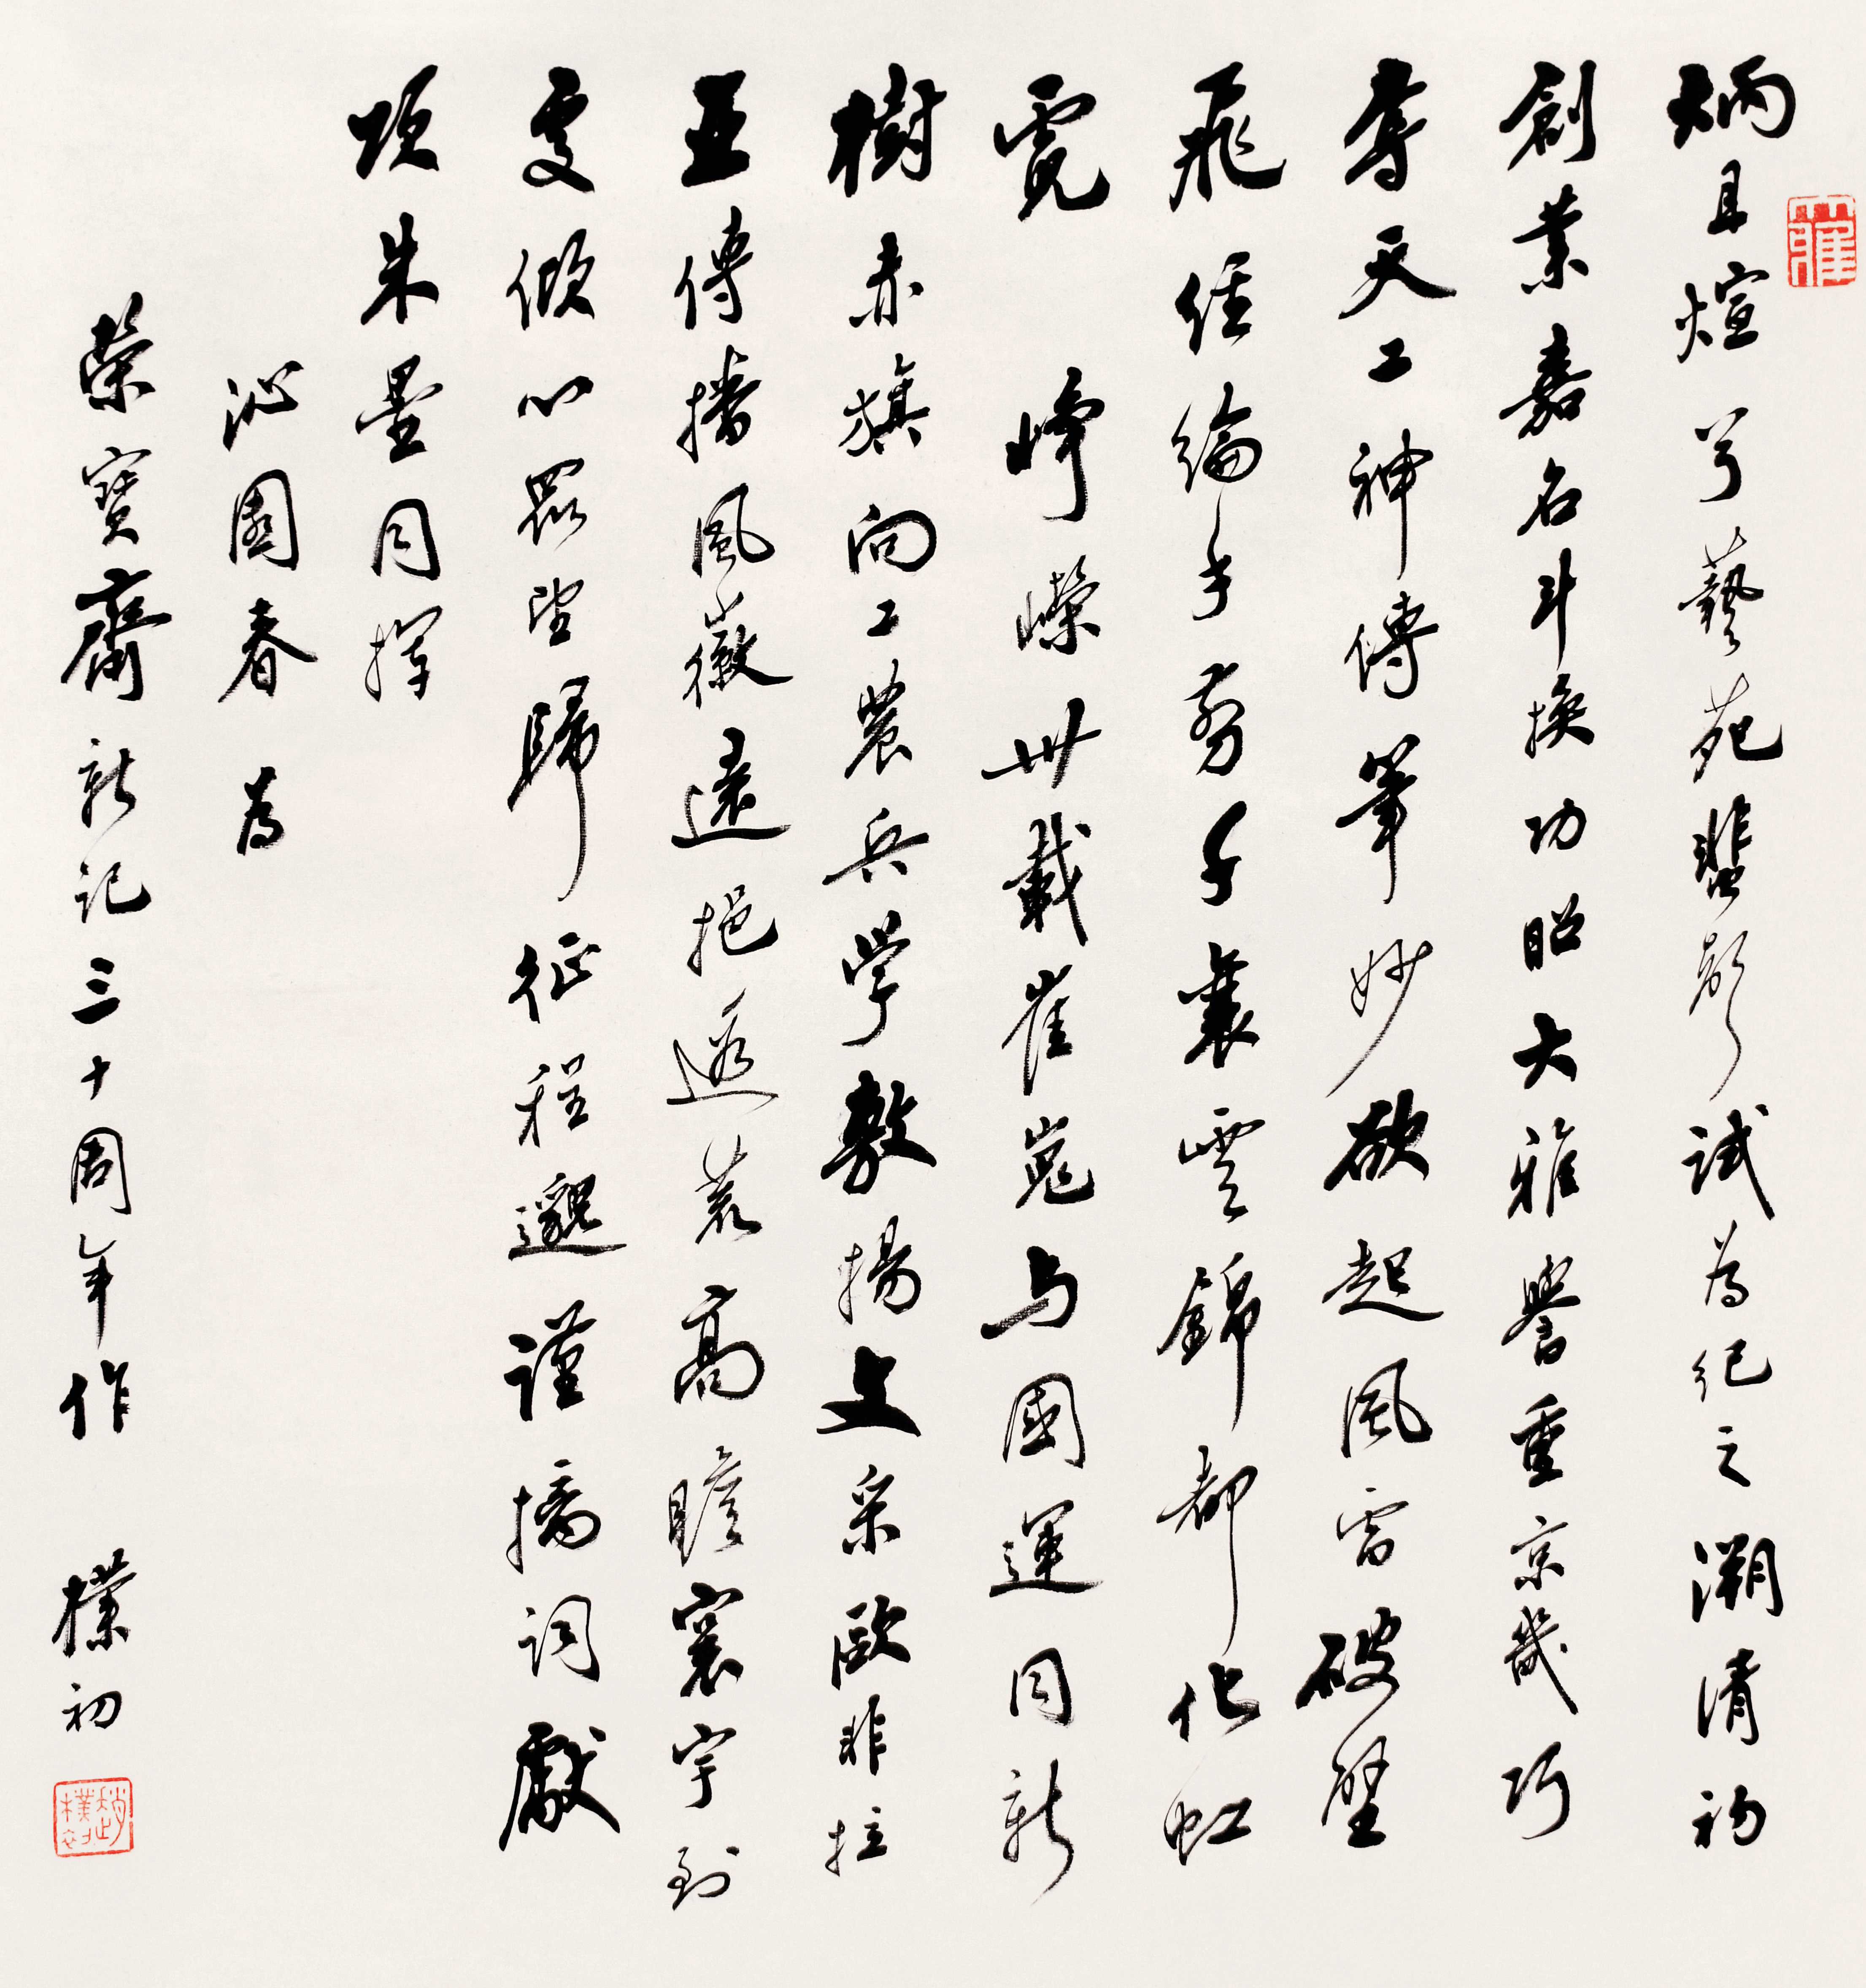 炳且煊兮藝苑蜚聲試為紀之溯清初
創業嘉名斗換功昭大雅譽重京畿巧
奪天工神傳筆妙欲起風雷破壁
飛經綸手剪千襄雲錦都化虹
霓 崢嶸卅載崔嵬与國運同新
樹赤旗向工農兵学敷揚文采歐非拉
亞傳播風徽遠挹遐荒高瞻寰宇到
處傾心眾望歸征程邈謹摛詞獻
頌朱墨同揮
沁園春 為
榮寶齋新记三十周年作 樸初
趙樸初